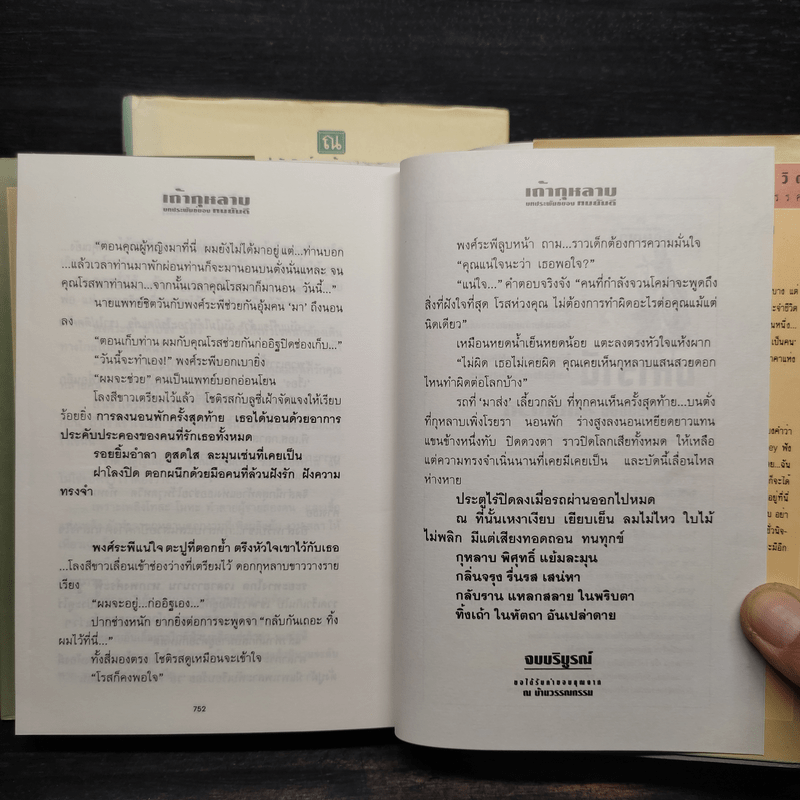 ณ
เถ้ากุหลาบ
บทประพันธ์ของ ทมยันตี
"ตอนคุณผู้หญิงมาที่นี่ ผมยังไม่ได้มาอยู่ แต่...ท่านบอก
...แล้วเวลาท่านมาพักผ่อนท่านก็จะมานอนบนตั่งนั่นแหละ จน
คุณโรสพาท่านมา...จากนั้นเวลาคุณโรสมาก็มานอน วันนี้..."
นายแพทย์ชิตวันกับพงศ์ระพีช่วยกันอุ้มคน 'มา' ถึงนอน
ลง
"ตอนเก็บท่าน ผมกับคุณโรสช่วยกันก่ออิฐปิดช่องเก็บ..."
"วันนี้จะทำเอง!" พงศ์ระพีบอกเบายิ่ง
"ผมจะช่วย" คนเป็นแพทย์บอกอ่อนโยน
โลงสีขาวเตรียมไว้แล้ว โชติรสกับลูซี่เฝ้าจัดแจงให้เรียบ
ร้อยยิ่ง การลงนอนพักครั้งสุดท้าย เธอได้นอนด้วยอาการ
ประคับประคองของคนที่รักเธอทั้งหมด
รอยยิ้มอำลา ดูสดใส ละมุนเช่นที่เคยเป็น
ฝาโลงปิด ตอกผนึกด้วยมือคนที่ล้วนฝังรัก ฝังความ
ทรงจำ
พงศ์ระพีแน่ใจ ตะปูที่ตอกย้ำ ตรึงหัวใจเขาไว้กับเธอ
...โลงสีขาวเลื่อนเข้าช่องว่างที่เตรียมไว้ ดอกกุหลาบขาววางราย
เรียง
"ผมจะอยู่...ก่ออิฐเอง..."
ปากช่างหนัก ยากยิ่งต่อการจะพูดจา "กลับกันเถอะ ทิ้ง
ผมไว้ที่นี่..."
ทั้งสี่มองตรง โชติรสดูเหมือนจะเข้าใจ
"โรสก็คงพอใจ"
752
เถ้ากุหลาบ
บทประพันธ์ของ ทมยันตี
พงศ์ระพีลูบหน้า ถาม...ราวเด็กต้องการความมั่นใจ
"คุณแน่ใจนะว่า เธอพอใจ?"
"แน่ใจ..." คำตอบจริงจัง "คนที่กำลังจวนโคม่าจะพูดถึง
สิ่งที่ฝังใจที่สุด โรสห่วงคุณ ไม่ต้องการทำผิดอะไรต่อคุณแม้แต่
นิดเดียว"
เหมือนหยดน้ำเย็นหยดน้อย แตะลงตรงหัวใจแห้งผาก
"ไม่ผิด เธอไม่เคยผิด คุณเคยเห็นกุหลาบแสนสวยดอก
ไหนทำผิดต่อโลกบ้าง"
รถที่ 'มาส่ง' เลี้ยวกลับ ที่ทุกคนเห็นครั้งสุดท้าย...บนตั่ง
ที่กุหลาบเพิ่งโรยรา นอนพัก ร่างสูงลงนอนเหยียดยาวแทน
แขนข้างหนึ่งทับ ปิดดวงตา ราวปิดโลกเสียทั้งหมด ให้เหลือ
แต่ความทรงจำเนิ่นนานที่เคยมีเคยเป็น และบัดนี้เลื่อนไหล
ห่างหาย
ประตูไร่ปิดลงเมื่อรถผ่านออกไปหมด
ณ ที่นั้นเหงาเงียบ เยียบเย็น ลมไม่ไหว ใบไม้
ไม่พลิก มีแต่เสียงทอดถอน ทนทุกข์
กุหลาบ พิศุทธิ์ แย้มละมุน
กลิ่นจรุง รื่นรส เสน่หา
กลับราน แหลกสลาย ในพริบตา
ทิ้งเถ้า ในหัตถา อันเปล่าดาย
จบบริบูรณ์
ขอได้รับคำขอบคุณจาก
ณ บ้านวรรณกรรม